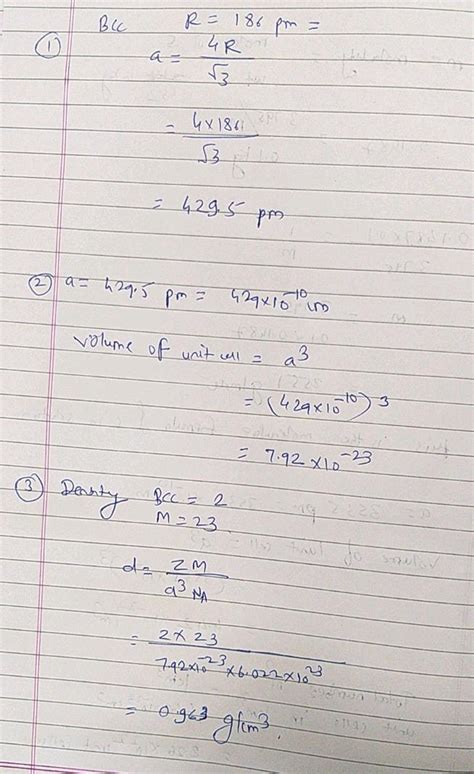 BCC R = 186 pm =
① a = 4R / √3
= 4×186 / √3
= 429.5 pm
② a = 429.5 pm = 429×10⁻¹⁰ cm
Volume of unit cell = a³
= (429×10⁻¹⁰)³
= 7.92×10⁻²³
③ Density BCC = 2
M = 23
d = ZM / a³ NA
= 2×23 / 7.92×10⁻²³×6.022×10²³
= 0.963 g/cm³.